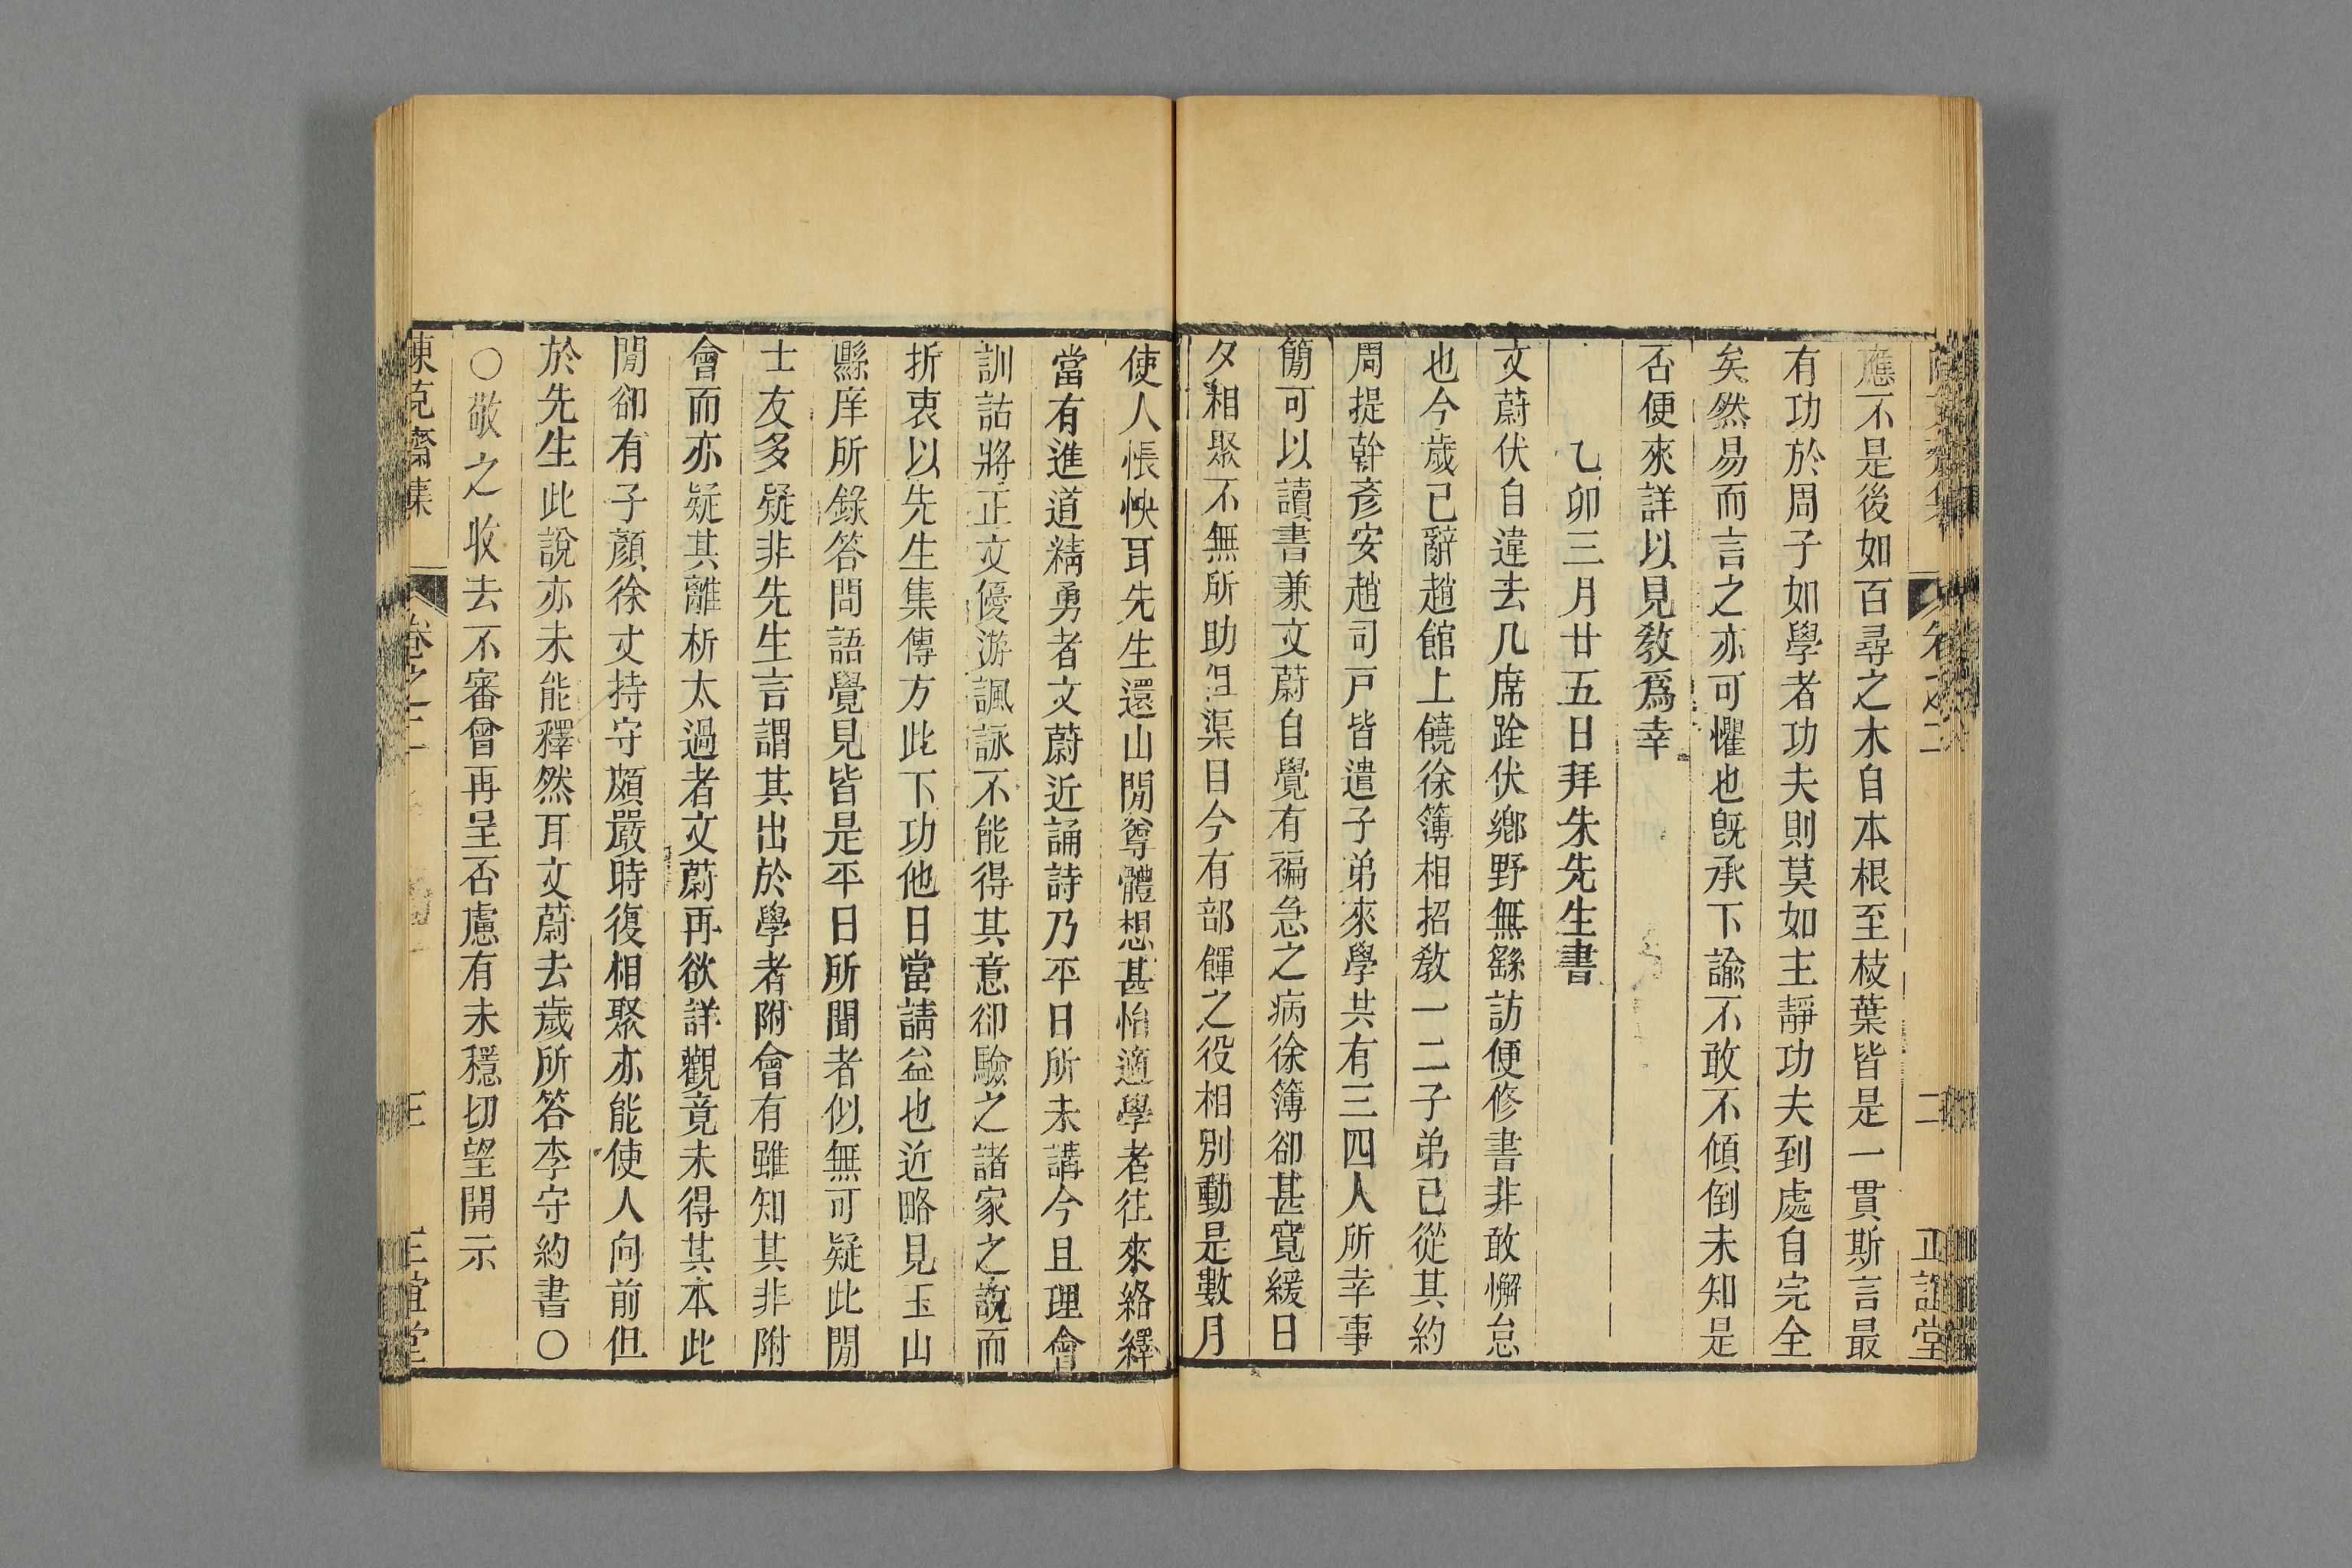 應不是後如百尋之木自本根至枝葉皆是一貫斯言最
有功於周子如學者功夫則莫如主靜功夫到處自完全
矣然易而言之亦可懼也旣承下諭不敢不傾倒未知是
否便來詳以見敎爲幸
乙卯三月廿五日拜朱先生書
文蔚伏自違去几席跧伏鄉野無繇訪便修書非敢懈怠
也今歲已辭趙館上饒徐簿相招敎一二子弟已從其約
周提幹彥安趙司戸皆遣子弟來學共有三四人所幸事
簡可以讀書兼文蔚自覺有褊急之病徐簿卻甚寬緩日
夕相聚不無所助但渠日今有部餫之役相別動是數月
使人悵怏耳先生還山閒尊體想甚怡適學者往來絡繹
當有進道精勇者文蔚近誦詩乃平日所未講今且理會
訓詁將正文優游諷詠不能得其意卻驗之諸家之說而
折衷以先生集傳方此下功他日當請益也近略見玉山
縣庠所錄答問語覺見皆是平日所聞者似無可疑此閒
士友多疑非先生言謂其出於學者附會有雖知其非附
會而亦疑其離析太過者文蔚再欲詳觀竟未得其本此
閒卻有子顏徐丈持守頗嚴時復相聚亦能使人向前但
於先生此說亦未能釋然耳文蔚去歲所答李守約書〇
〇敬之收去不審曾再呈否慮有未穩切望開示
陳克齋集
卷之二
三
正誼堂